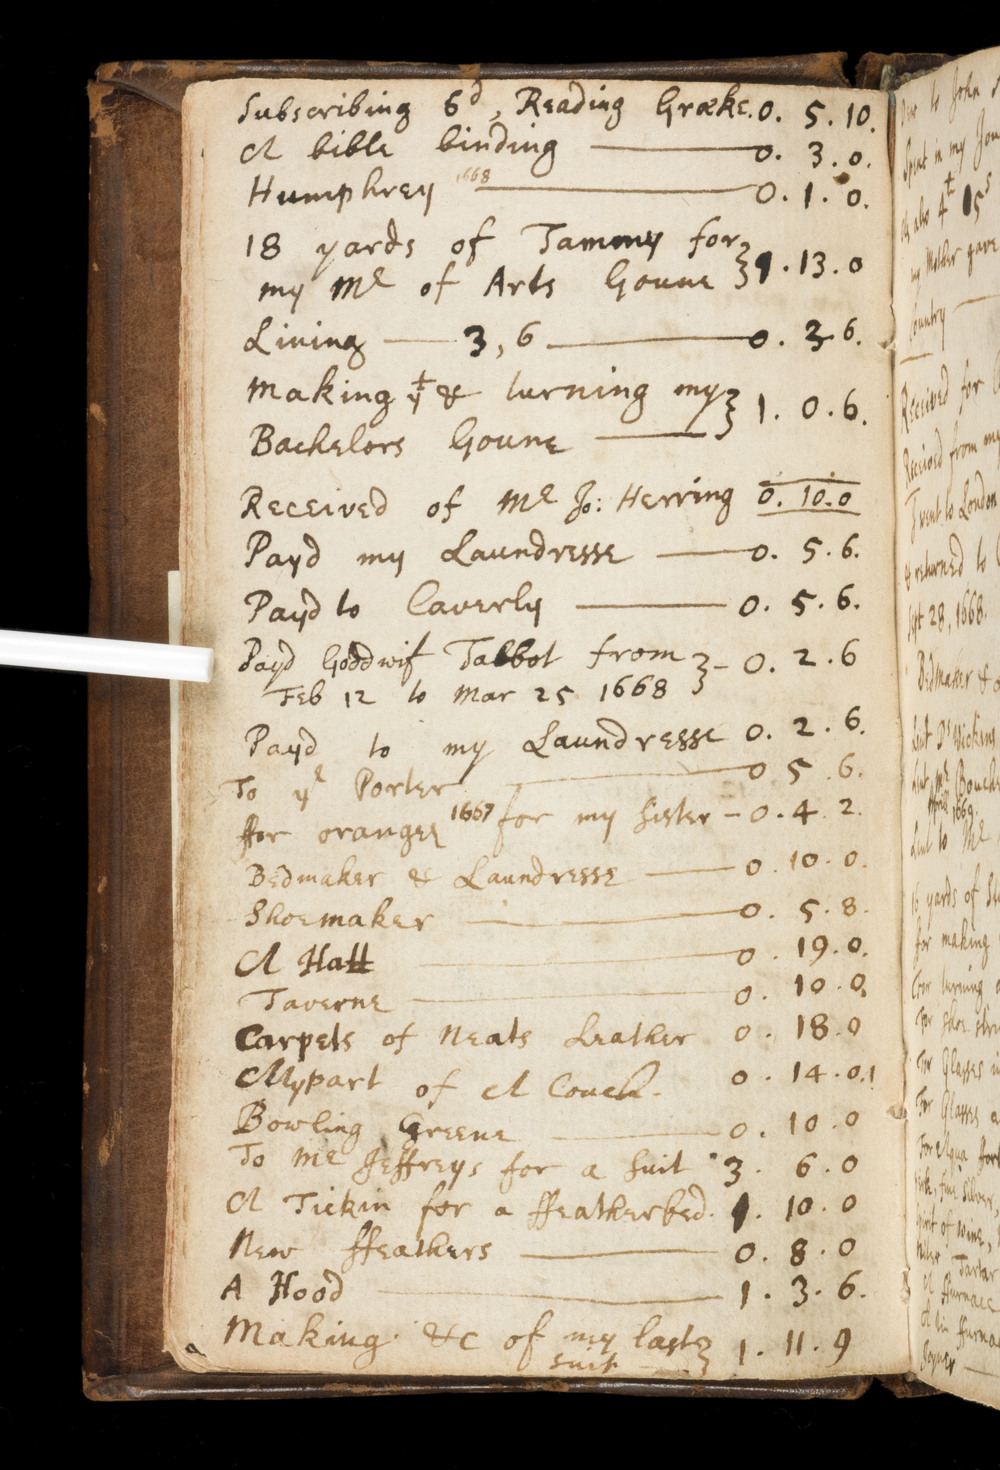 Subscribing 6d, Reading Græke. 0. 5. 10.
A bible binding 0. 3. 0.
Humphrey 1668 0. 1. 0.
18 yards of Tammy for
my Mr of Arts Goune } 1. 13. 0
Lining 3, 6 0. 3 6.
Making yt & turning my
Bachelors Goune } 1. 0. 6.
Received of Mr Jo: Herring 0. 10. 0
Payd my Laundresse 0. 5. 6.
Payd to Caverly 0. 5. 6.
Payd Goodwif Talbot from } 0. 2. 6
Feb 12 to Mar 25 1668
Payd to my Laundresse 0. 2. 6.
To ye Porter 0 5. 6.
ffor oranges 1667 for my sister 0. 4. 2.
Bedmaker & Laundresse 0. 10. 0.
Shoemaker 0. 5. 8.
A Hatt 0. 19. 0.
Taverne 0. 10. 0.
Carpets of Neats Leather 0. 18. 0
My part of A Couch. 0. 14. 0.
Bowling Greene 0. 10. 0
To Mr Jeffreys for a suit 3. 6. 0
A Tickin for a ffeatherbed. 1. 10. 0
New ffeathers 0. 8. 0
A Hood 1. 3. 6.
Making &c of my last
suit } 1. 11. 9
to John
Spent in my Jou
also 4t 15s
my Mother gave
Country
Received for
Received from my
I went to London
& returned to
Sept 28, 1668.
Bedmaker &
Lent Ds Wickins
Lent Mr Bouch
April 1669.
Lent to Mr
yards of
for making
For turning
For shoe
For Glasses
For Glasses
For Aqua fort
fine silver,
spirit of wine,
Tartar
A ffurnace
A tin ffurna
Joyner